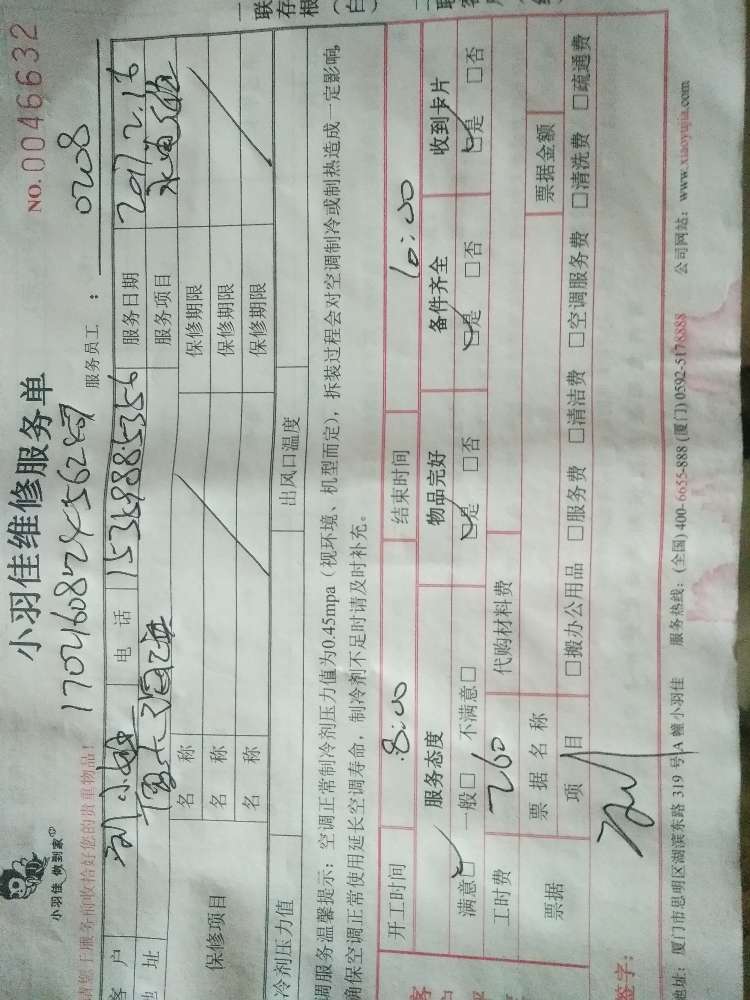 小羽佳 做到家
小羽佳维修服务单
NO.0046632
请您于服务前收拾好您的贵重物品！
服务员工：0208
客户 刘小姐 电话 服务日期 2017.2.16
地址 服务项目
保修项目 名称 保修期限
名称 保修期限
名称 保修期限
冷剂压力值 出风口温度
调服务温馨提示：空调正常制冷剂压力值为0.45mpa（视环境、机型而定），拆装过程会对空调制冷或制热造成一定影响，
确保空调正常使用延长空调寿命，制冷剂不足时请及时补充。
开工时间 8:00 结束时间 10:00
服务态度 物品完好 备件齐全 收到卡片
满意□ 一般□ 不满意□ □是 □否 □是 □否 □是 □否
工时费 260 代购材料费
票据 票据名称 票据金额
项目 □搬办公用品 □服务费 □清洁费 □空调服务费 □清洗费 □疏通费
签字：
地址：厦门市思明区湖滨东路 319 号A 幢小羽佳 服务热线：(全国) 400-6655-888 (厦门) 0592-5178888 公司网站：www.xiaoyujia.com
一联存根（白）